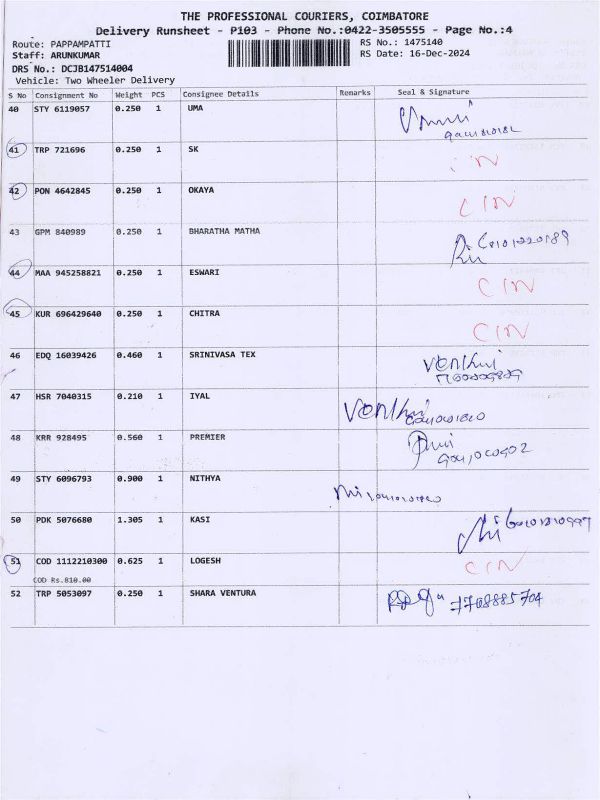 THE PROFESSIONAL COURIERS, COIMBATORE
Delivery Runsheet - P103 - Phone No.:0422-3505555 - Page No.:4
Route: PAPPAMPATTI
RS No.: 1475140
Staff: ARUNKUMAR
RS Date: 16-Dec-2024
DRS No.: DCJB147514004
Vehicle: Two Wheeler Delivery
S No Consignment No Weight PCS Consignee Details Remarks Seal & Signature
40 STY 6119057 0.250 1 UMA
41 TRP 721696 0.250 1 SK
42 PON 4642845 0.250 1 OKAYA CIN
43 GPM 840989 0.250 1 BHARATHA MATHA
44 MAA 945258821 0.250 1 ESWARI CIN
45 KUR 696429640 0.250 1 CHITRA CIN
46 EDQ 16039426 0.460 1 SRINIVASA TEX
47 HSR 7040315 0.210 1 IYAL
48 KRR 928495 0.560 1 PREMIER
49 STY 6096793 0.900 1 NITHYA
50 PDK 5076680 1.305 1 KASI
51 COD 1112210300 0.625 1 LOGESH CIN
COD Rs.810.00
52 TRP 5053097 0.250 1 SHARA VENTURA 7708885704